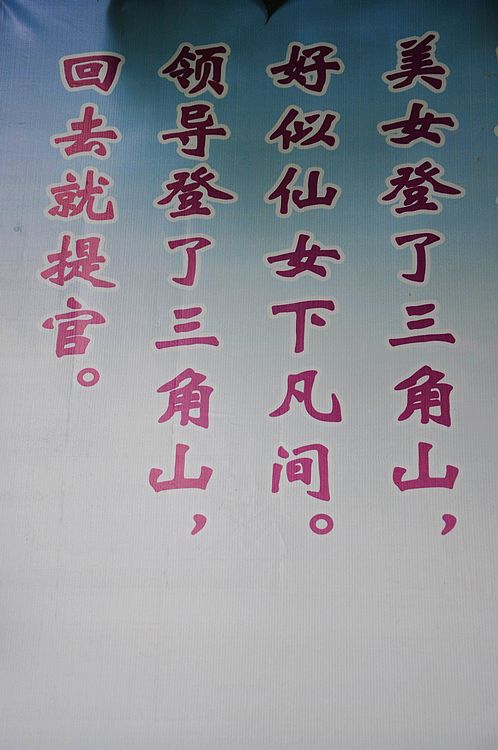 美女登了三角山，
好似仙女下凡间。
领导登了三角山，
回去就提官。